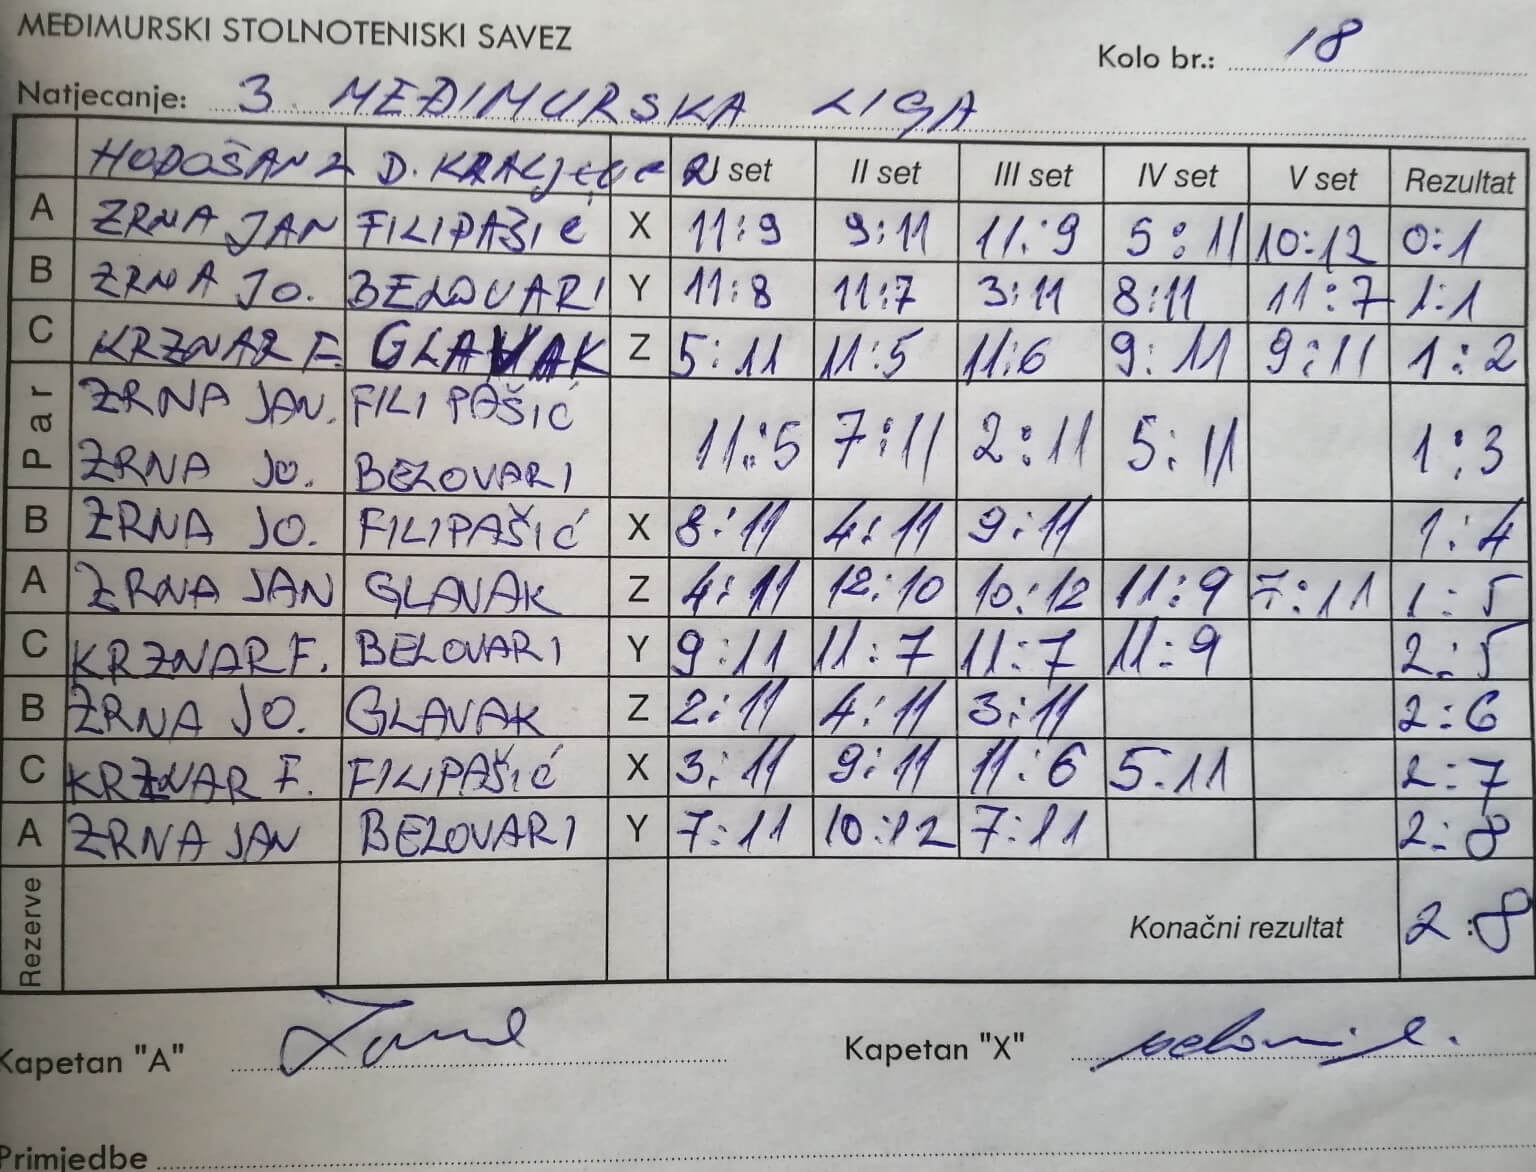 MEĐIMURSKI STOLNOTENISKI SAVEZ
Kolo br.: 18
Natjecanje: 3. MEĐIMURSKA LIGA
HODOŠAN 2 D. KRALJEVEC 2 I set II set III set IV set V set Rezultat
A ZRNA JAN FILIPAŠIĆ X 11:9 9:11 11:9 5:11 10:12 0:1
B ZRNA JO. BELOVARI Y 11:8 11:7 3:11 8:11 11:7 1:1
C KRZNAR F. GLAVAK Z 5:11 11:5 11:6 9:11 9:11 1:2
Par ZRNA JAN. FILIPAŠIĆ
ZRNA JO. BELOVARI 11:5 7:11 2:11 5:11 1:3
B ZRNA JO. FILIPAŠIĆ X 8:11 4:11 9:11 1:4
A ZRNA JAN GLAVAK Z 4:11 12:10 10:12 11:9 7:11 1:5
C KRZNAR F. BELOVARI Y 9:11 11:7 11:7 11:9 2:5
B ZRNA JO. GLAVAK Z 2:11 4:11 3:11 2:6
C KRZNAR F. FILIPAŠIĆ X 3:11 9:11 11:6 5:11 2:7
A ZRNA JAN BELOVARI Y 7:11 10:12 7:11 2:8
Rezerve Konačni rezultat 2:8
Kapetan "A" Kapetan "X"
Primjedbe